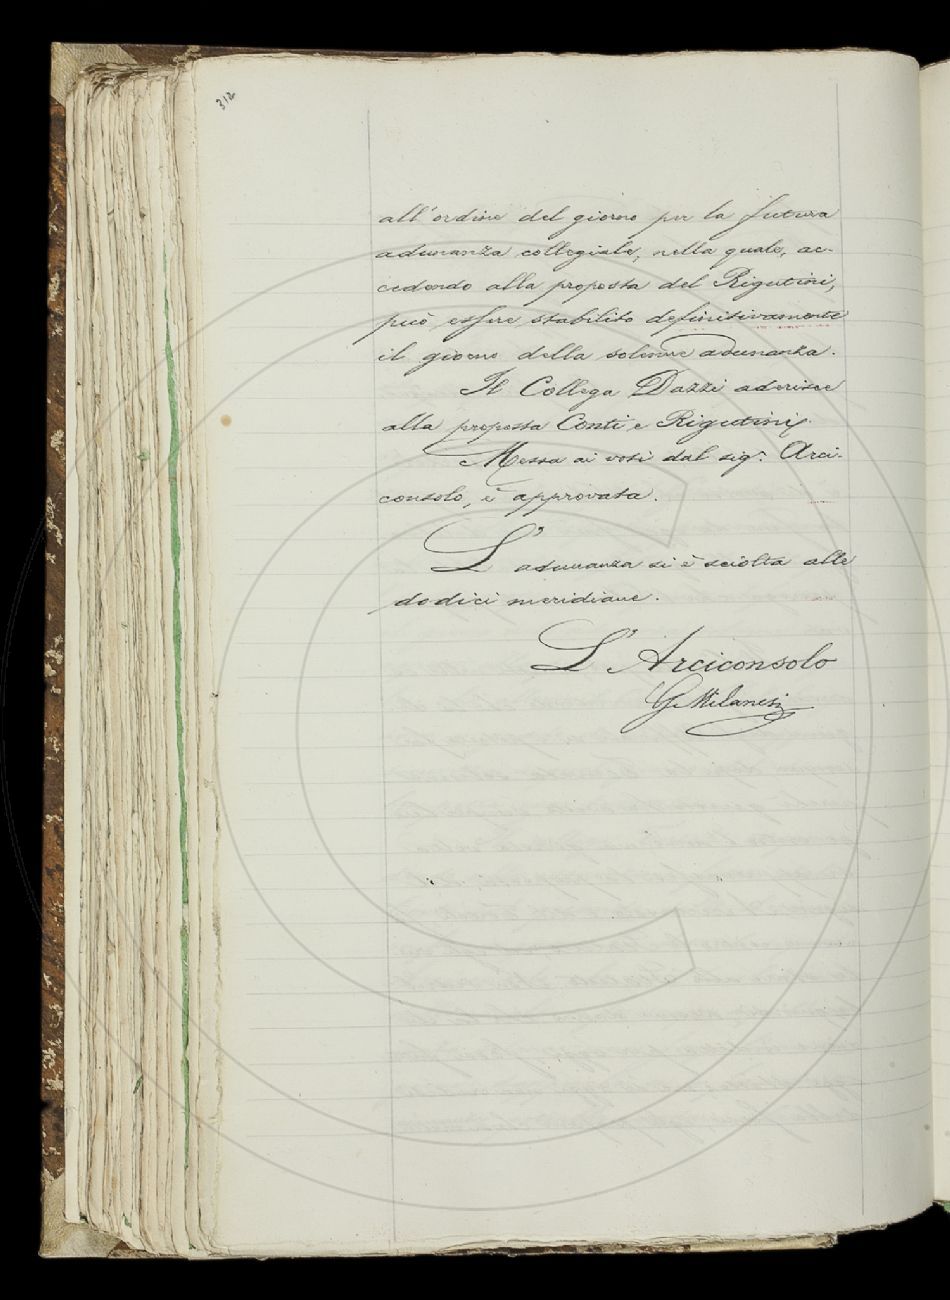 312
all'ordine del giorno per la futura
adunanza collegiale, nella quale, ac-
cedendo alla proposta del Rigutini,
può essere stabilito definitivamente
il giorno della solenne adunanza.
Il Collega Dazzi aderisce
alla proposta Conti e Rigutini.
Messa ai voti dal sigr. Arci-
consolo, è approvata.
L'adunanza si è sciolta alle
dodici meridiane.
L'Arciconsolo
G. Milanesi